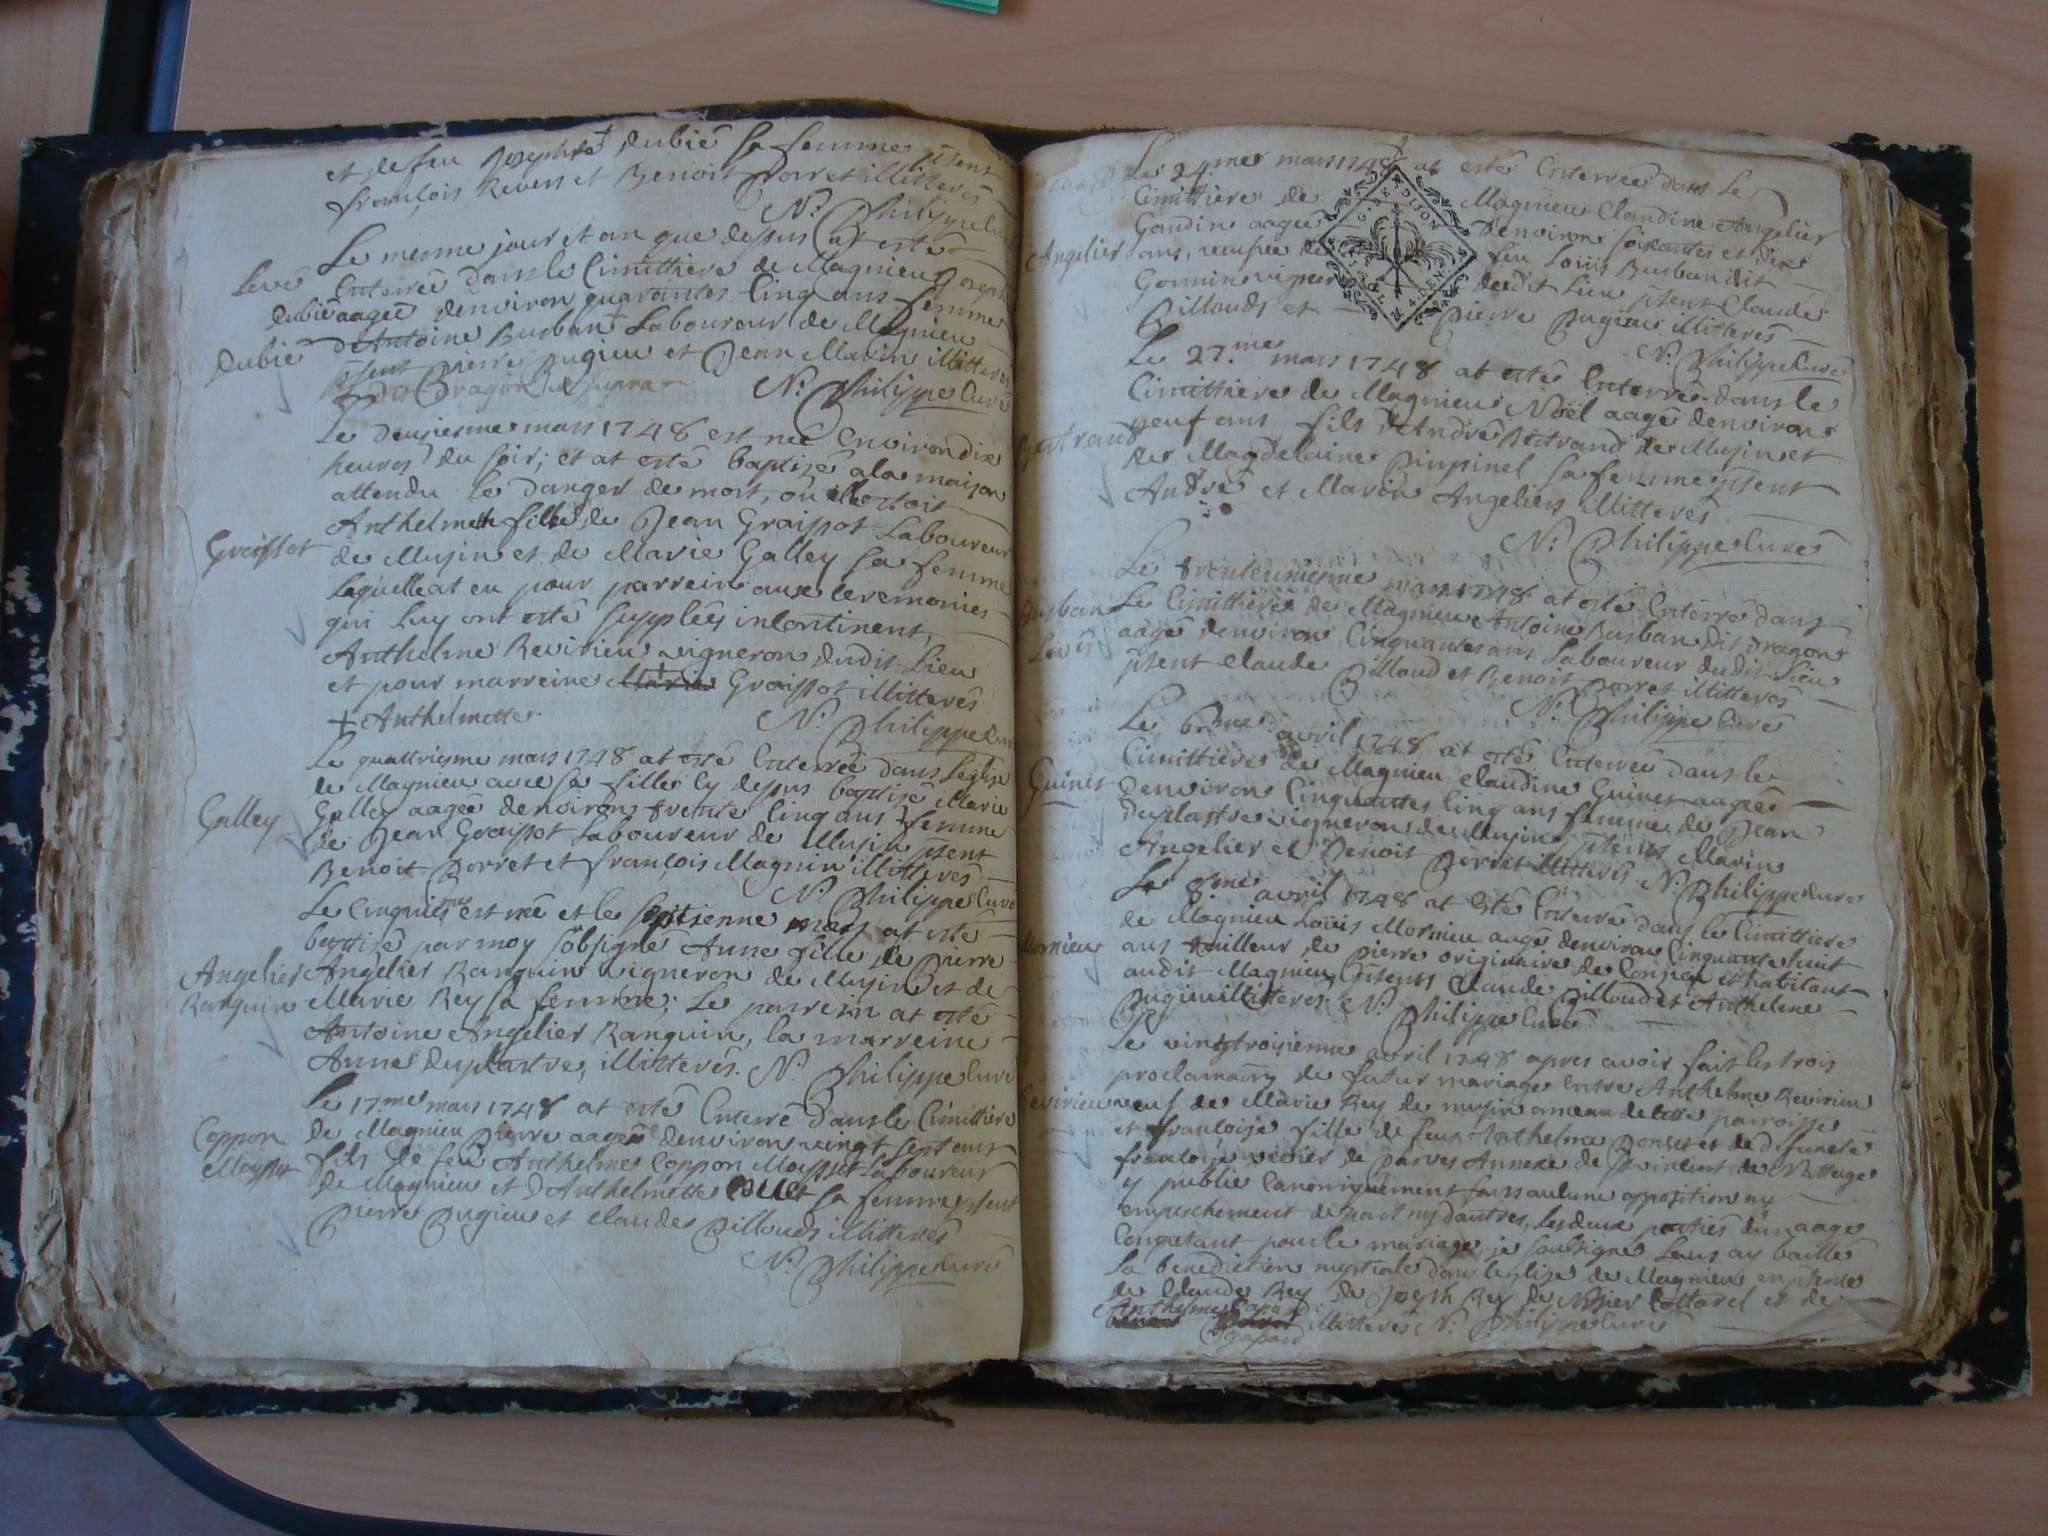 et de feu Josephte dubié sa femme psent
françois Revers et Benoit Porret illitterés
N. Philippe Curé
Le mesme jour et an que dessus at esté
Levé
Enterrée dans le Cimittiere de Magnieu Josephte
dubié aagée denviron quarantes Cinq ans femme
Dubié
d'Antoine Burban + Laboureur de Magnieu
psent pierre pugieu et Jean Marin illitterés
+ dit Dragon ut supra N. Philippe Curé
Le deuziesme mars 1748 est née Environ dix
heures du soir; et at esté baptisée a la maison
attendu le danger de mort, où elle estoit
Anthelmette fille de Jean Graissot Laboureur
Graissot
de Musin et de Marie Galley sa femme
Laquelle at eu pour parrein aux Ceremonies
qui Luy ont esté supplées incontinent,
Anthelme Revirieu vigneron dudit Lieu
et pour marreine Marie Graissot illitterés
+ Anthelmette N. Philippe Curé
Le quattriesme mars 1748 at esté Enterrée dans Leglise
de Magnieu avec sa fille cy dessus baptisée Marie
Galley
Galley aagée denviron trente Cinq ans femme
de Jean Graissot Laboureur de Musin psent
Benoit Porret et françois Magnin illitterés
N. Philippe Curé
Le Cinquiesme est née et le septienne mars at esté
baptisé par moy sobsigné Anne fille de Pierre
Angelier
Angelier Ranquin vigneron de Musin et de
Ranquin
Marie Rey sa femme; Le parrein at esté
Antoine Angelier Ranquin, la marreine
Anne duplastre, illitterés. N. Philippe Curé
Le 17.me mars 1748 at esté Enterré dans le Cimittiere
Coppon
de Magnieu Pierre aagée denviron vingt sept ans
Moyssit
fils de feu Anthelme Coppon Moyssit Laboureur
de Magnieu et d'Anthelmette sa femme psent
Pierre Pugieu et Claude Pillouds illitterés
N. Philippe Curé
Le 24.me mars 1748 at esté Enterrée dans Le
Cimittiere de Magnieu Claudine Angelier
Gaudin aagée denviron soixantes et dix
Angelier
ans, veufve de feu Loüis Burban dit
Gonnin vigneron dudit Lieu psent Claude
Pillouds et Pierre Pugieu illitterés
N. Philippe Curé
Le 27.me mars 1748 at esté Enterré dans le
Cimittiere de Magnieu Noël aagé denviron
Bertrand
neuf ans fils d'André Bertrand de Musin et
de Magdelaine Pinpinel sa femme psent
André et Marin Angeliers illitterés
N. Philippe Curé
Le trenteuniesme mars 1748 at esté Enterré dans
Burban
Le Cimittiere de Magnieu Antoine Burban dit Dragon
Levés
aagé denviron Cinquantes ans Laboureur dudit Lieu
psent Claude Pilloud et Benoit Porret illitterés
N. Philippe Curé
Le 6.me avril 1748 at esté Enterrée dans le
Cimittiere de Magnieu Claudine Guinet aagée
Guinet
denviron Cinquantes Cinq ans femme de Jean
Duplastre vigneron de Musin psents Marin
Angelier et Benoit Porret illitterés N. Philippe Curé
Le 8.me avril 1748 at esté Enterré dans le Cimittiere
de Magnieu Loüis Mornieu aagé denviron Cinquante huit
Mornieu
ans tailleur de pierre originaire de Conzieu et habitant
audit Magnieu psents Claude Pilloud et Anthelme
Pugieu illitterés N. Philippe Curé
Le vingtroisienne avril 1748 apres avoir fait les trois
proclamaons de futur mariage entre Anthelme Revirieu
Revirieu
veuf de Marie Rey de musin ameau de cette parroisse
et françoise fille de feus Anthelme Ponset et de defuncte
françoise de Parves Annexe de de Nattage
y publié Canoniquement sans aulcune opposition ny
empeschement de part ny d'autres, Les deux parties dun aage
Competant pour le mariage, je soubsigné Leurs ay baillé
la benediction nuptiale dans leglise de Magnieu en psence
de Claude Rey de Joseph Rey de et de
Anthelme Gapard illitterés N. Philippe Curé
Gapard